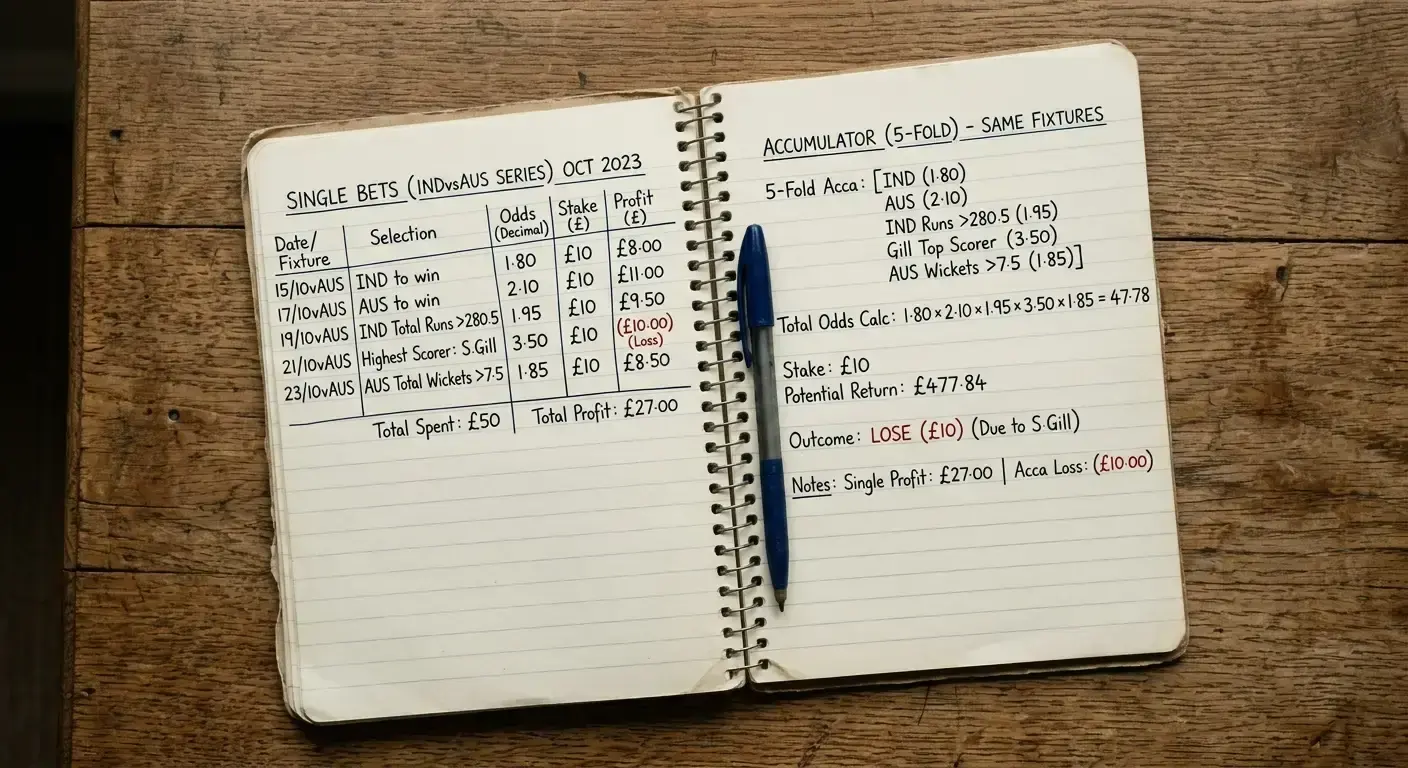 SINGLE BETS (INDvsAUS SERIES) OCT 2023
Date/Fixture Selection Odds (Decimal) Stake (£) Profit (£)
15/10vAUS IND to win 1.80 £10 £8.00
17/10vAUS AUS to win 2.10 £10 £11.00
19/10vAUS IND Total Runs >280.5 1.95 £10 £9.50
21/10vAUS Highest Scorer: S.Gill 3.50 £10 (£10.00) (Loss)
23/10vAUS AUS Total Wickets >7.5 1.85 £10 £8.50
Total Spent: £50 Total Profit: £27.00
ACCUMULATOR (5-FOLD) - SAME FIXTURES
5-Fold Acca: [IND (1.80)
AUS (2.10)
IND Runs >280.5 (1.95)
Gill Top Scorer (3.50)
AUS Wickets >7.5 (1.85)]
Total Odds Calc: 1.80 × 2.10 × 1.95 × 3.50 × 1.85 = 47.78
Stake: £10
Potential Return: £477.84
Outcome: LOSE (£10) (Due to S.Gill)
Notes: Single Profit: £27.00 | Acca Loss: (£10.00)